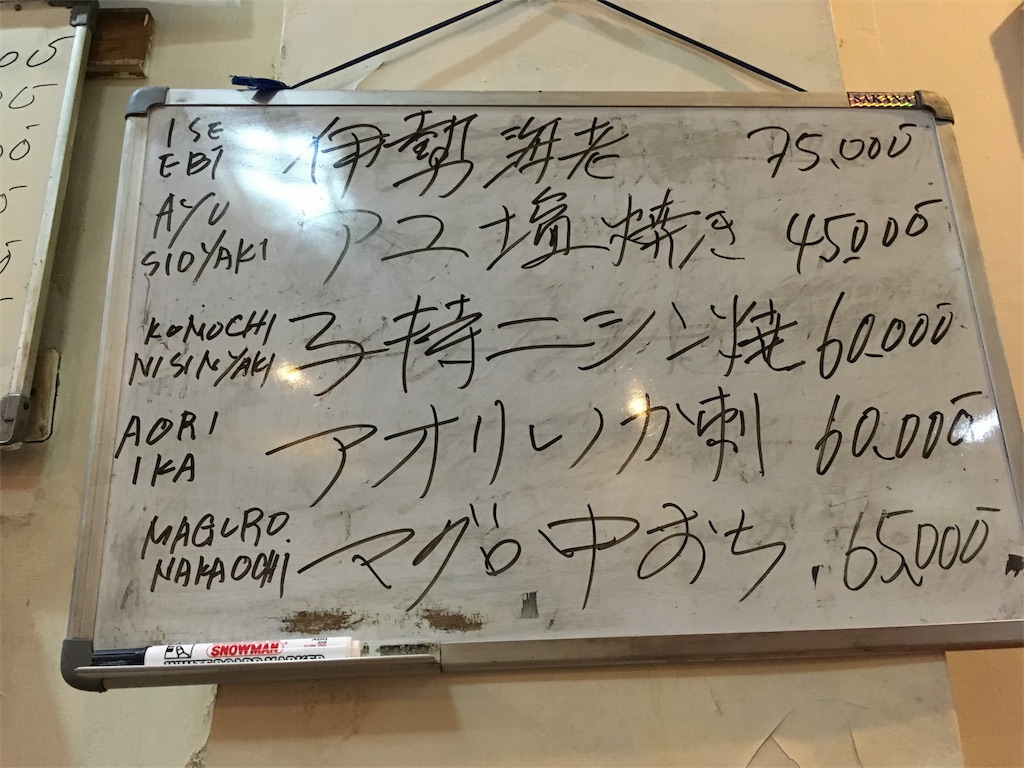 SAKANA
ISE EBI 伊勢海老 75.000
AYU SIOYAKI アユ塩焼き 45.000
KOMOCHI NISINYAKI 子持ニシン焼 60.000
AORI IKA アオリイカ刺 60.000
MAGURO. NAKAOCHI マグロ中おち 65.000
EBI SNOWMAN
WHITEBOARD MARKER